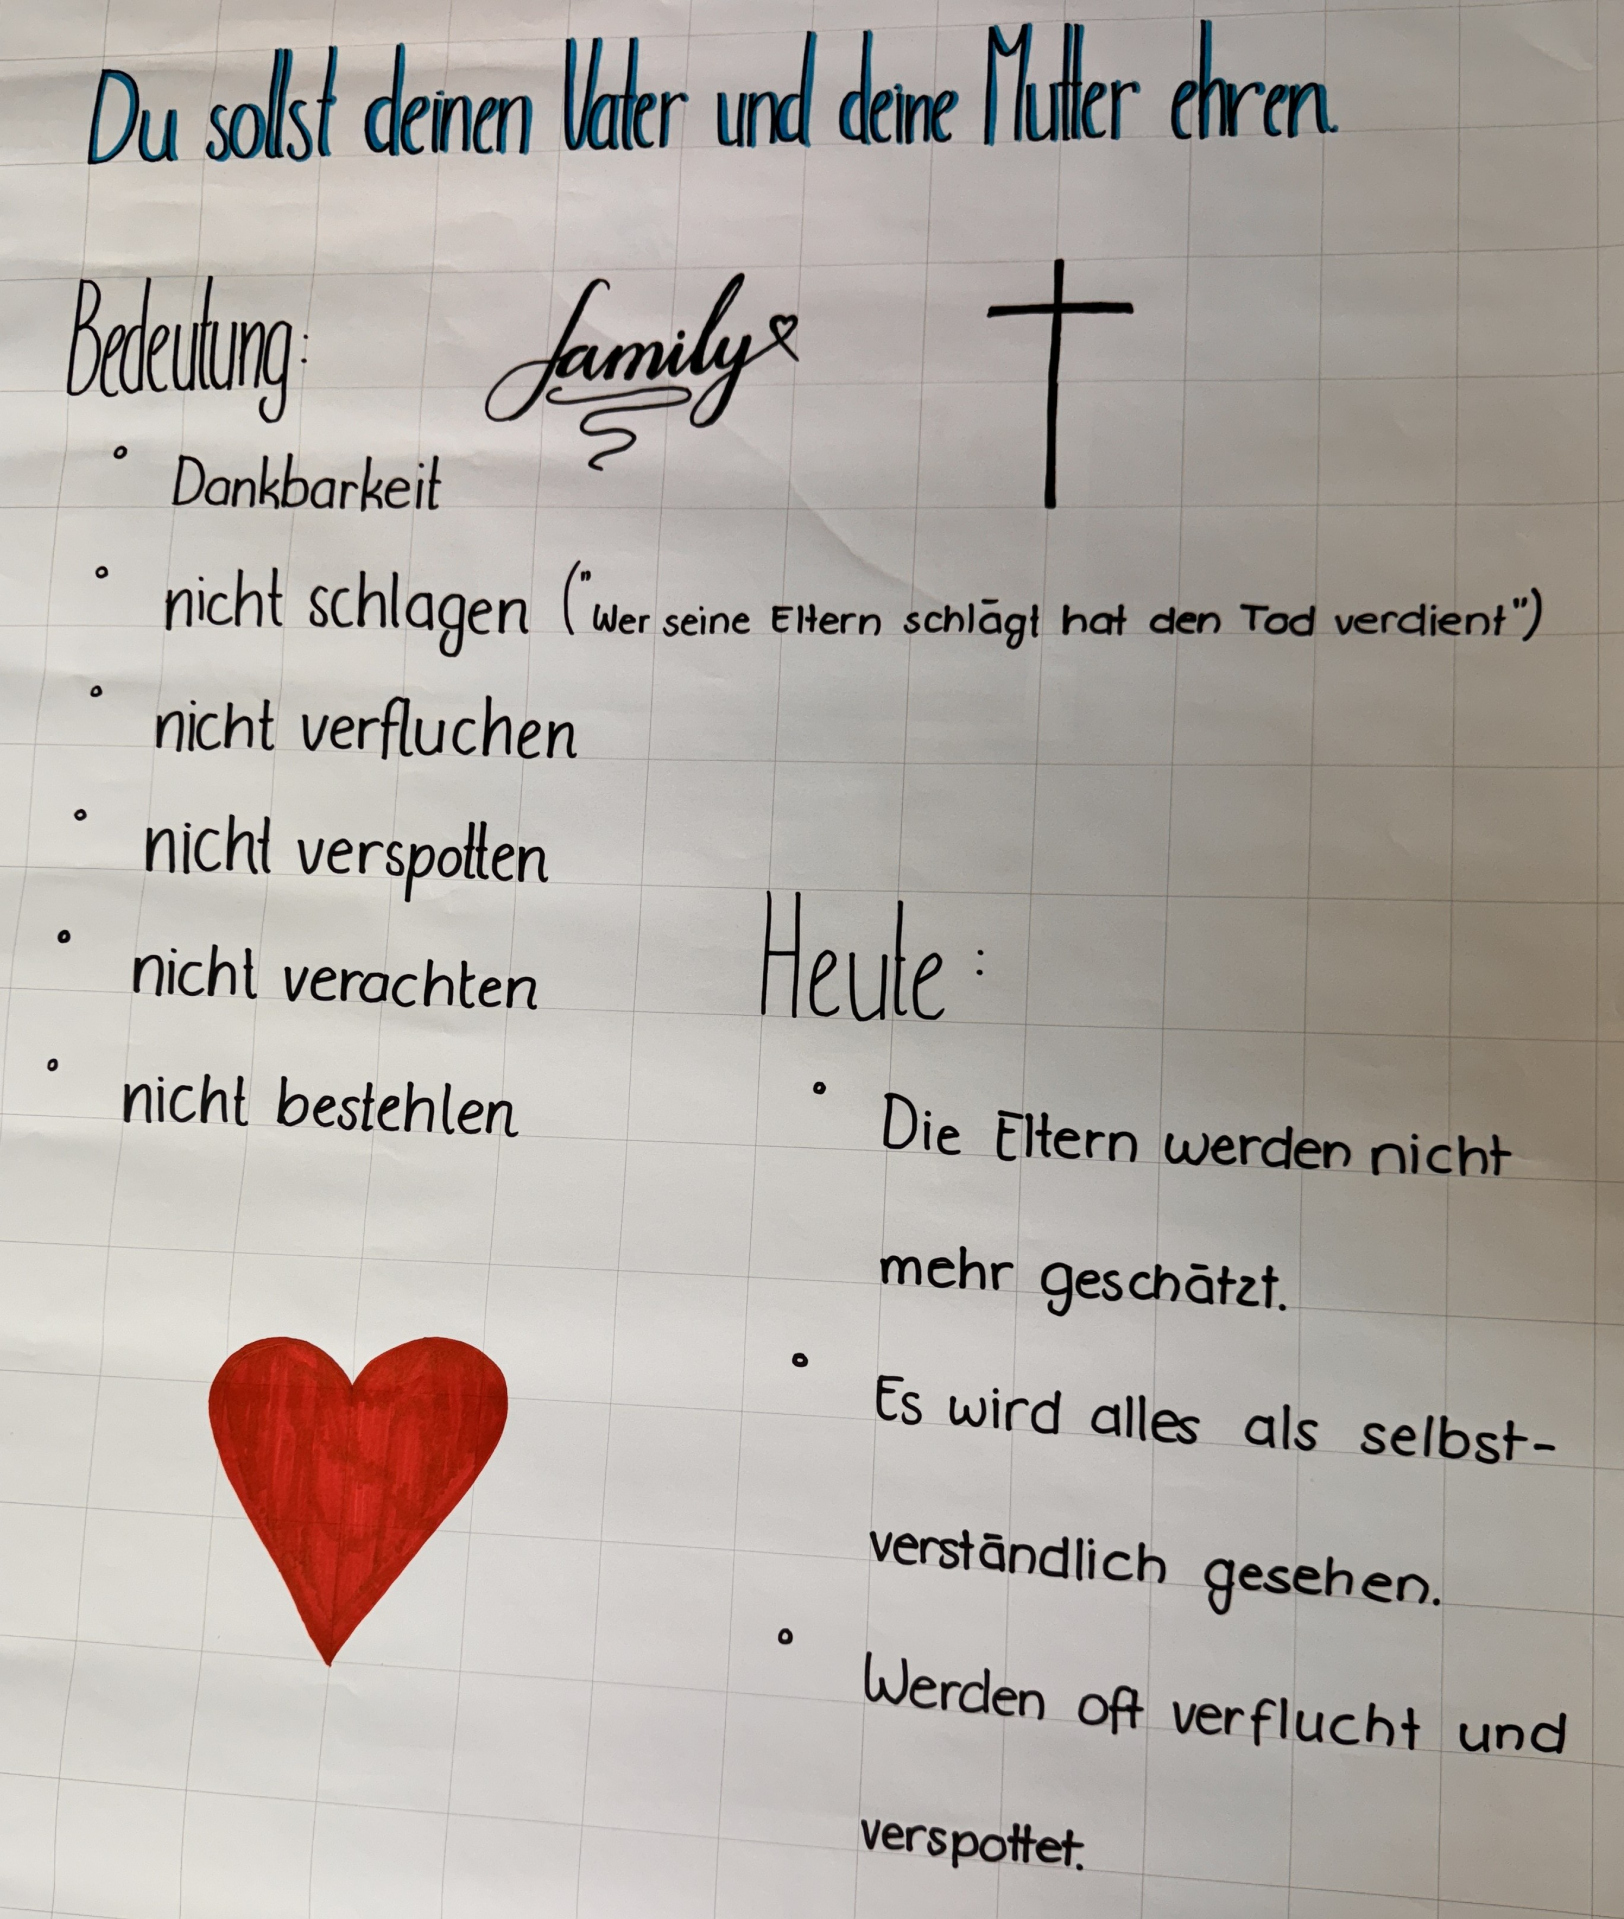 Du sollst deinen Vater und deine Mutter ehren.
Bedeutung:
family
° Dankbarkeit
° nicht schlagen ("Wer seine Eltern schlägt hat den Tod verdient")
° nicht verfluchen
° nicht verspotten
° nicht verachten
° nicht bestehlen
Heute:
° Die Eltern werden nicht
mehr geschätzt.
° Es wird alles als selbst-
verständlich gesehen.
° Werden oft verflucht und
verspottet.